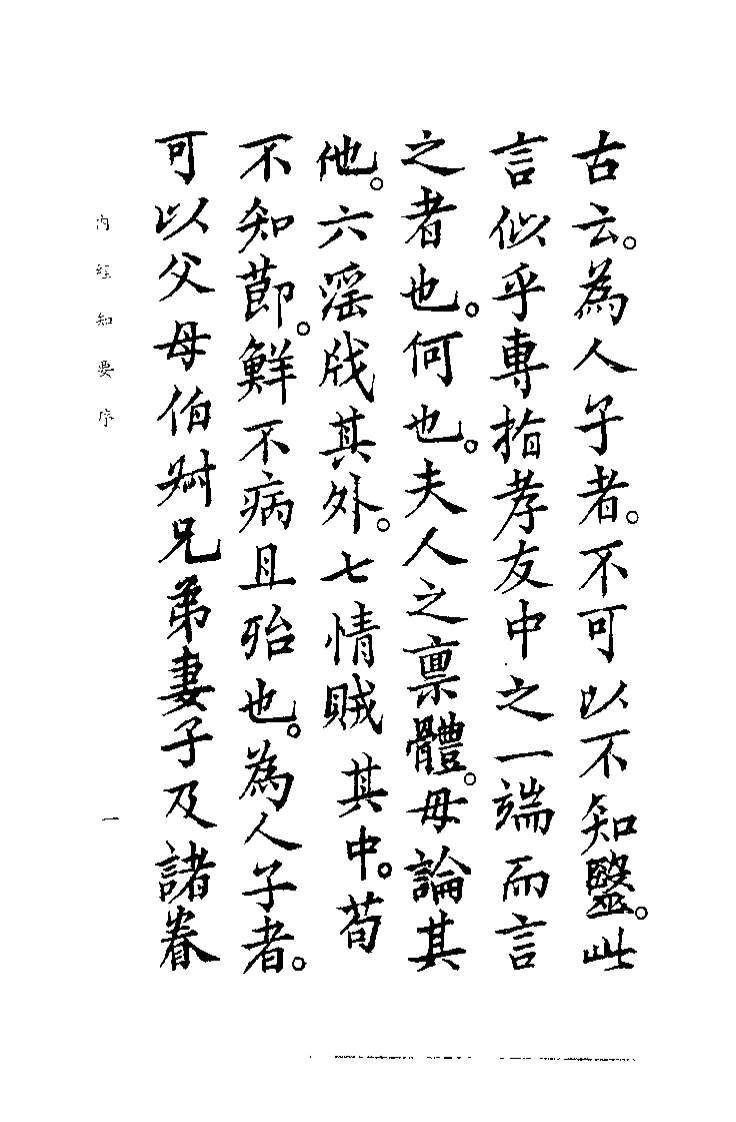 古云。為人子者。不可以不知毉。此
言似乎專指孝友中之一端而言
之者也。何也。夫人之禀體。毋論其
他。六滛戕其外。七情賊其中。苟
不知莭。鮮不病且殆也。為人子者。
可以父母伯叔兄弟妻子及諸眷
內經知要序
一